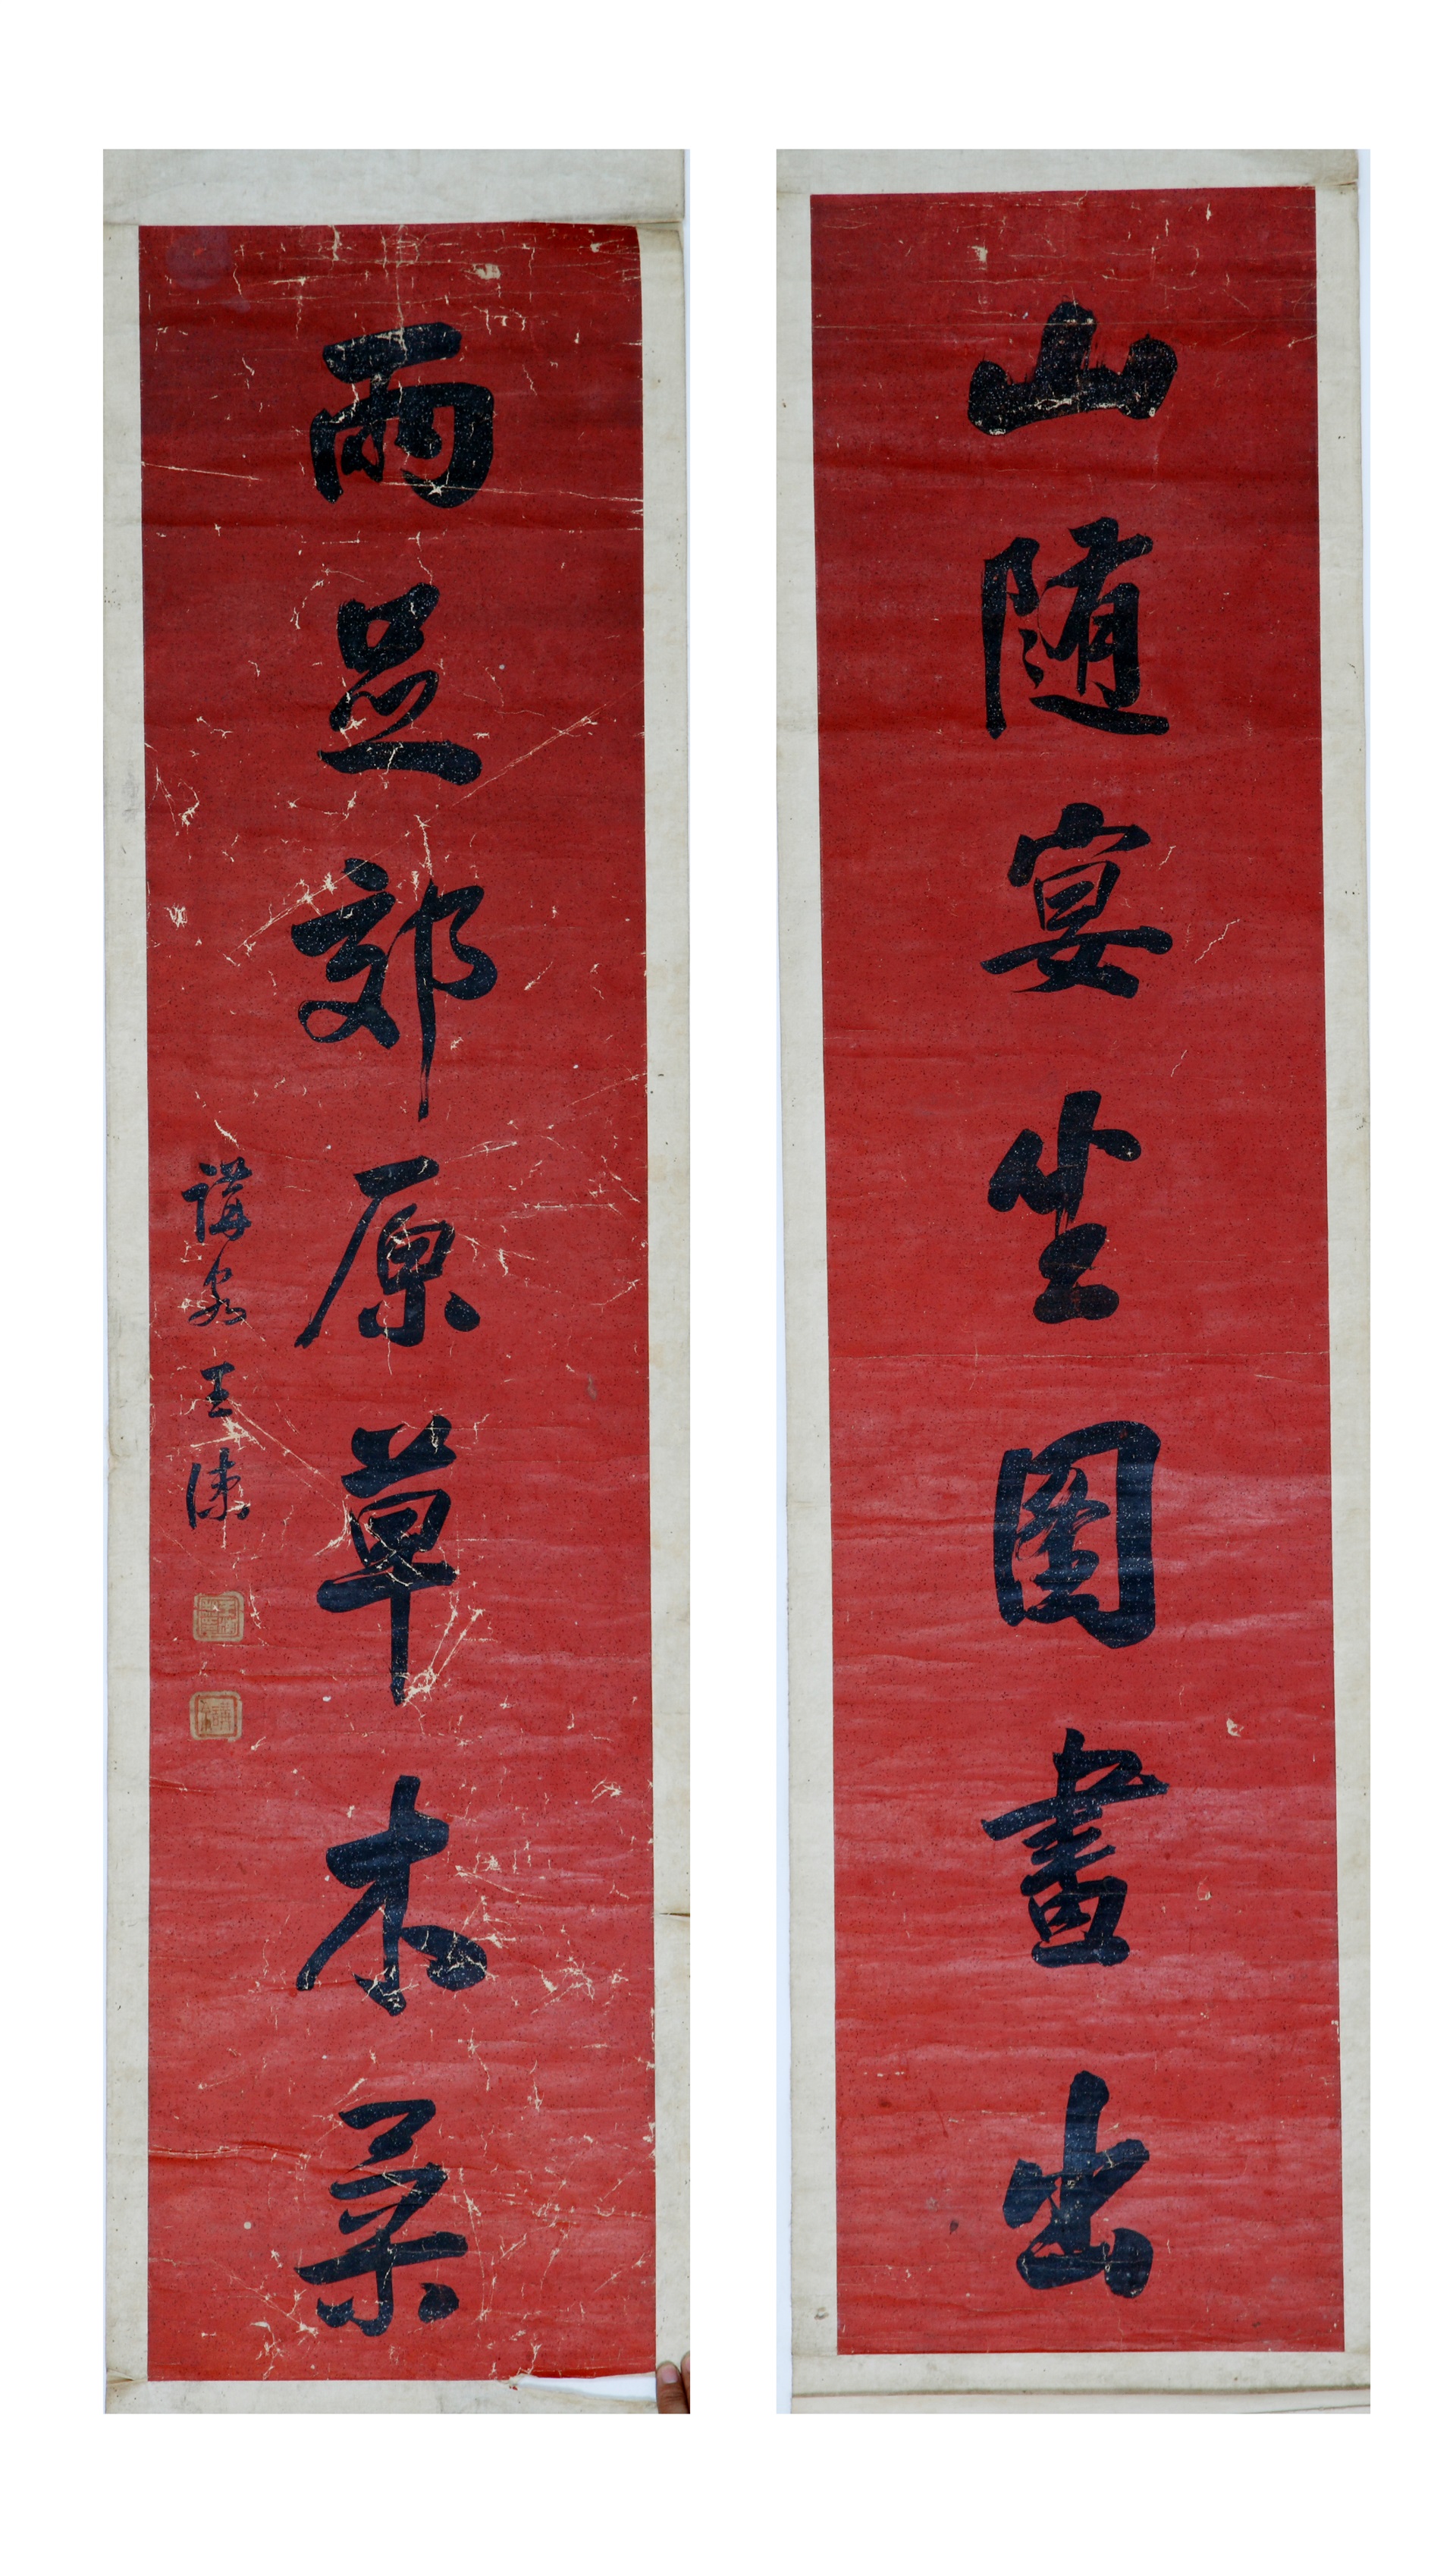 山随宴坐圖畫出
雨足郊原草木柔
講泉王